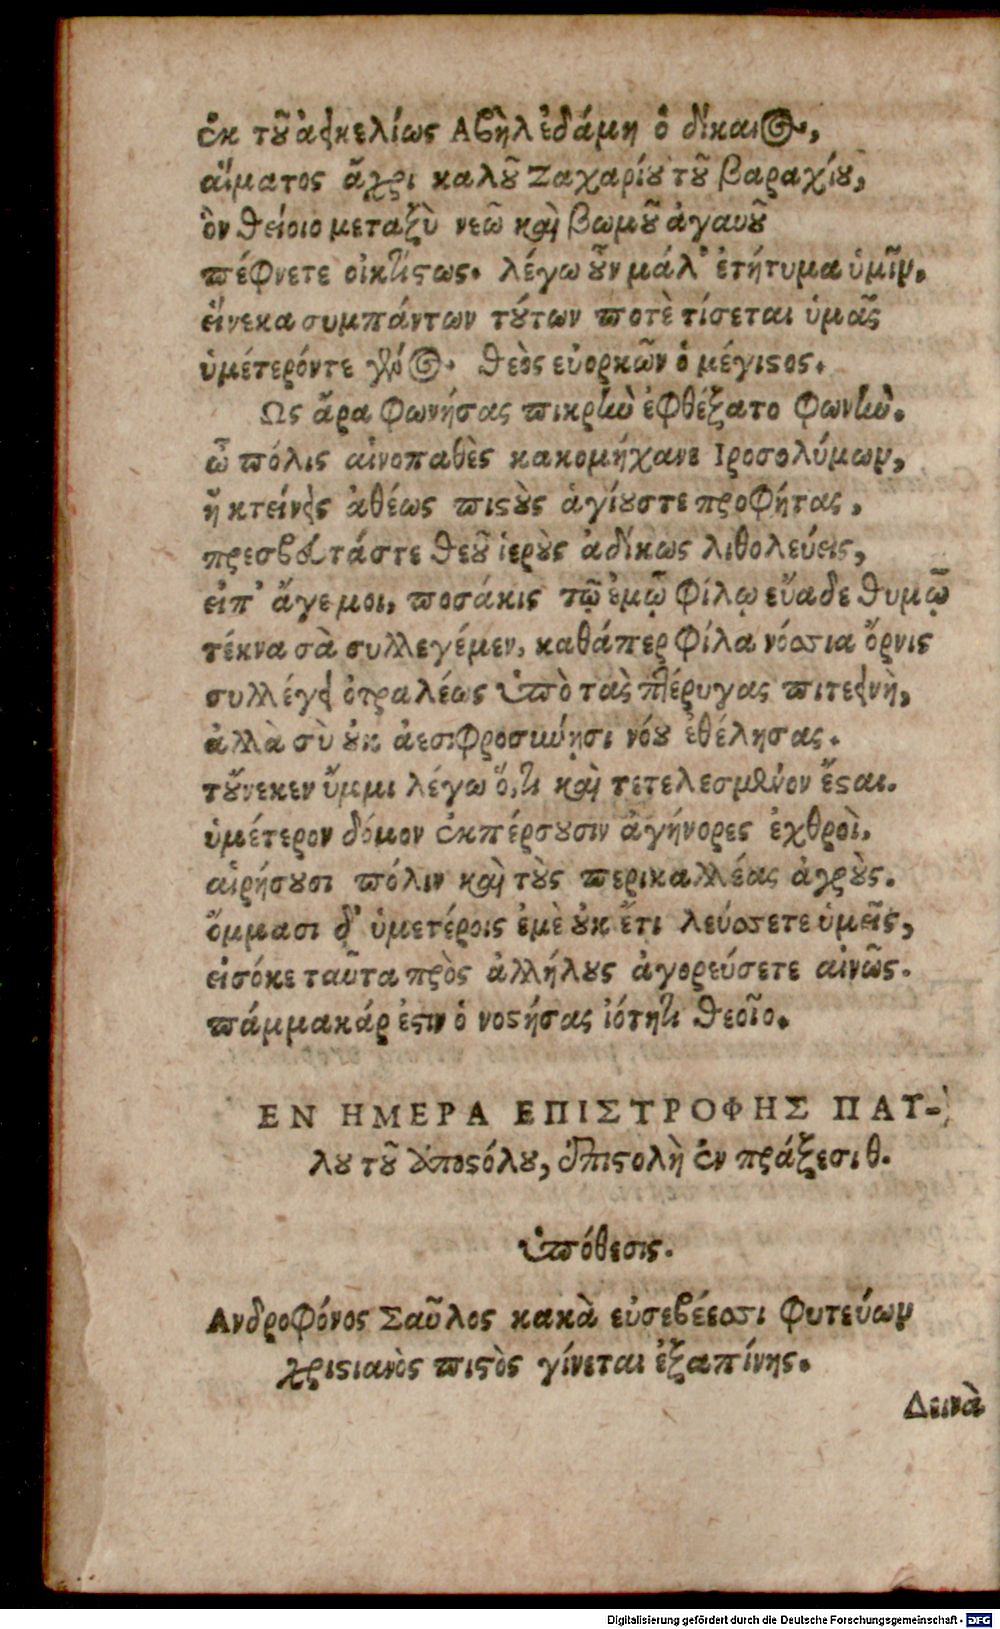 ἐκ τοῦ ἀεικελίως Αβὴλ ἐδάμη ὁ δίκαιος,
αἵματος ἄχρι καλοῦ Ζαχαρίου τοῦ βαραχίου,
ὃν θείοιο μεταξὺ νεῶ καὶ βωμοῦ ἀγαυοῦ
πέφνετε οἰκτίστως. λέγω οὖν μάλ' ἐτήτυμα ὑμῖν,
εἵνεκα συμπάντων τούτων ποτὲ τίσεται ὑμᾶς
ὑμέτερόντε γένος. θεὸς εὐορκῶν ὁ μέγιστος.
Ως ἄρα φωνήσας πικρὴν ἐφθέξατο φωνὴν.
ὦ πόλις αἰνοπαθὲς κακομήχανε Ιροσολύμων,
ἣ κτείνεις ἀθέως πιστοὺς ἁγίουστε προφήτας,
πρεσβευτάστε θεοῦ ἱεροὺς ἀδίκως λιθολεύεις,
εἰπ' ἄγε μοι, ποσάκις τῷ ἐμῷ φίλῳ εὔαδε θυμῷ
τέκνα σὰ συλλεγέμεν, καθάπερ φίλα νόσσια ὄρνις
συλλέγει ὀτραλέως ὑπὸ τὰς πτέρυγας πιτεεινὴ,
ἀλλὰ σὺ οὐκ ἀεσιφροσύνησι νόου ἐθέλησας.
τοὔνεκεν ὔμμι λέγω ὅ,τι καὶ τετελεσμένον ἔσται.
ὑμέτερον δόμον ἐκπέρσουσιν ἀγήνορες ἐχθροὶ,
αἱρήσουσι πόλιν καὶ τοὺς περικαλλέας ἀγροὺς.
ὄμμασι δ' ὑμετέροις ἐμὲ οὐκ ἔτι λεύσσετε ὑμεῖς,
εἰσόκε ταῦτα πρὸς ἀλλήλους ἀγορεύσετε αἰνῶς.
πάμμακάρ ἐστιν ὁ νοστήσας ἰότητι θεοῖο.
ΕΝ ΗΜΕΡΑ ΕΠΙΣΤΡΟΦΗΣ ΠΑΥ-
λου τοῦ ἀποστόλου, ἐπιστολὴ ἐν πράξεσι θ.
ὑπόθεσις.
Ανδροφόνος Σαῦλος κακὰ εὐσεβέεσσι φυτεύων
χριστιανὸς πιστὸς γίνεται ἐξαπίνης.
Δεινὰ
Digitalisierung gefördert durch die Deutsche Forschungsgemeinschaft - DFG